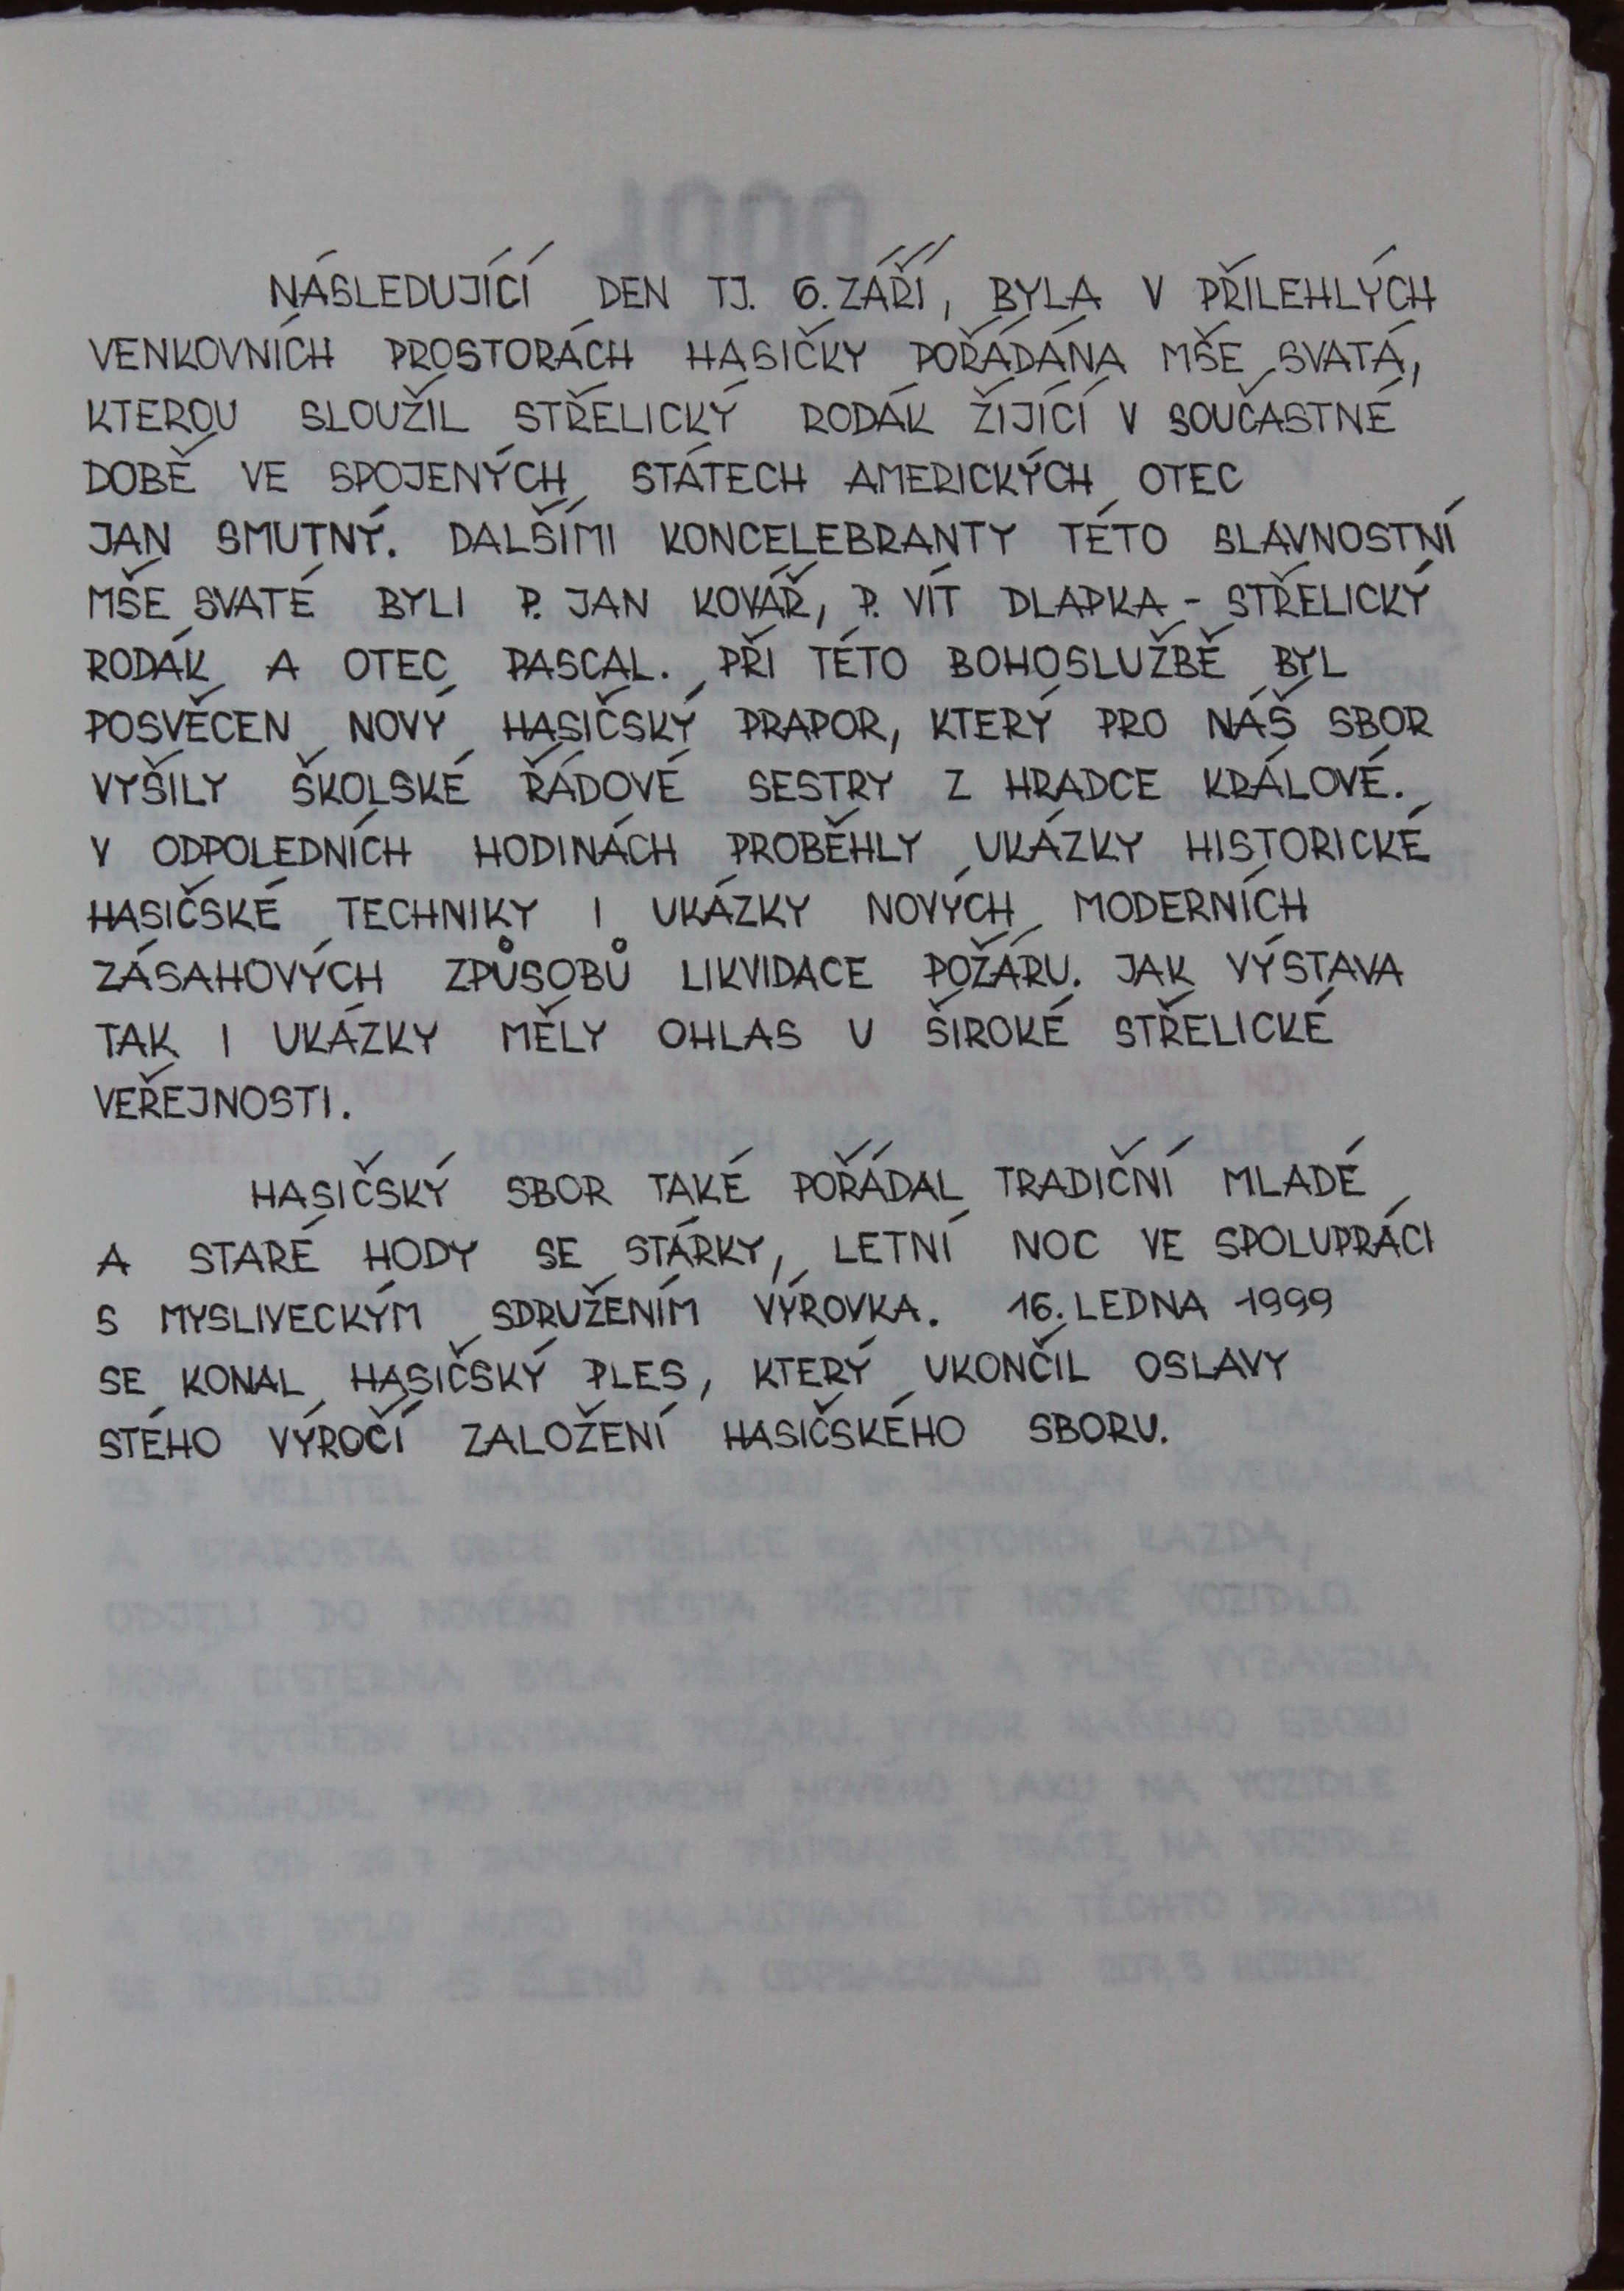 NÁSLEDUJÍCÍ DEN TJ. 6. ZÁŘÍ, BYLA V PŘILEHLÝCH
VENKOVNÍCH PROSTORÁCH HASIČKY POŘÁDÁNA MŠE SVATÁ,
KTEROU SLOUŽIL STŘELICKÝ RODÁK ŽIJÍCÍ V SOUČASTNÉ
DOBĚ VE SPOJENÝCH STÁTECH AMERICKÝCH OTEC
JAN SMUTNÝ. DALŠÍMI KONCELEBRANTY TÉTO SLAVNOSTNÍ
MŠE SVATÉ BYLI P. JAN KOVÁŘ, P. VÍT DLAPKA - STŘELICKÝ
RODÁK A OTEC PASCAL. PŘI TÉTO BOHOSLUŽBĚ BYL
POSVĚCEN NOVÝ HASIČSKÝ PRAPOR, KTERÝ PRO NÁŠ SBOR
VYŠILY ŠKOLSKÉ ŘÁDOVÉ SESTRY Z HRADCE KRÁLOVÉ.
V ODPOLEDNÍCH HODINÁCH PROBĚHLY UKÁZKY HISTORICKÉ
HASIČSKÉ TECHNIKY I UKÁZKY NOVÝCH MODERNÍCH
ZÁSAHOVÝCH ZPŮSOBŮ LIKVIDACE POŽÁRU. JAK VÝSTAVA
TAK I UKÁZKY MĚLY OHLAS U ŠIROKÉ STŘELICKÉ
VEŘEJNOSTI.
HASIČSKÝ SBOR TAKÉ POŘÁDAL TRADIČNÍ MLADÉ
A STARÉ HODY SE STÁRKY, LETNÍ NOC VE SPOLUPRÁCI
S MYSLIVECKÝM SDRUŽENÍM VÝROVKA. 16. LEDNA 1999
SE KONAL HASIČSKÝ PLES, KTERÝ UKONČIL OSLAVY
STÉHO VÝROČÍ ZALOŽENÍ HASIČSKÉHO SBORU.